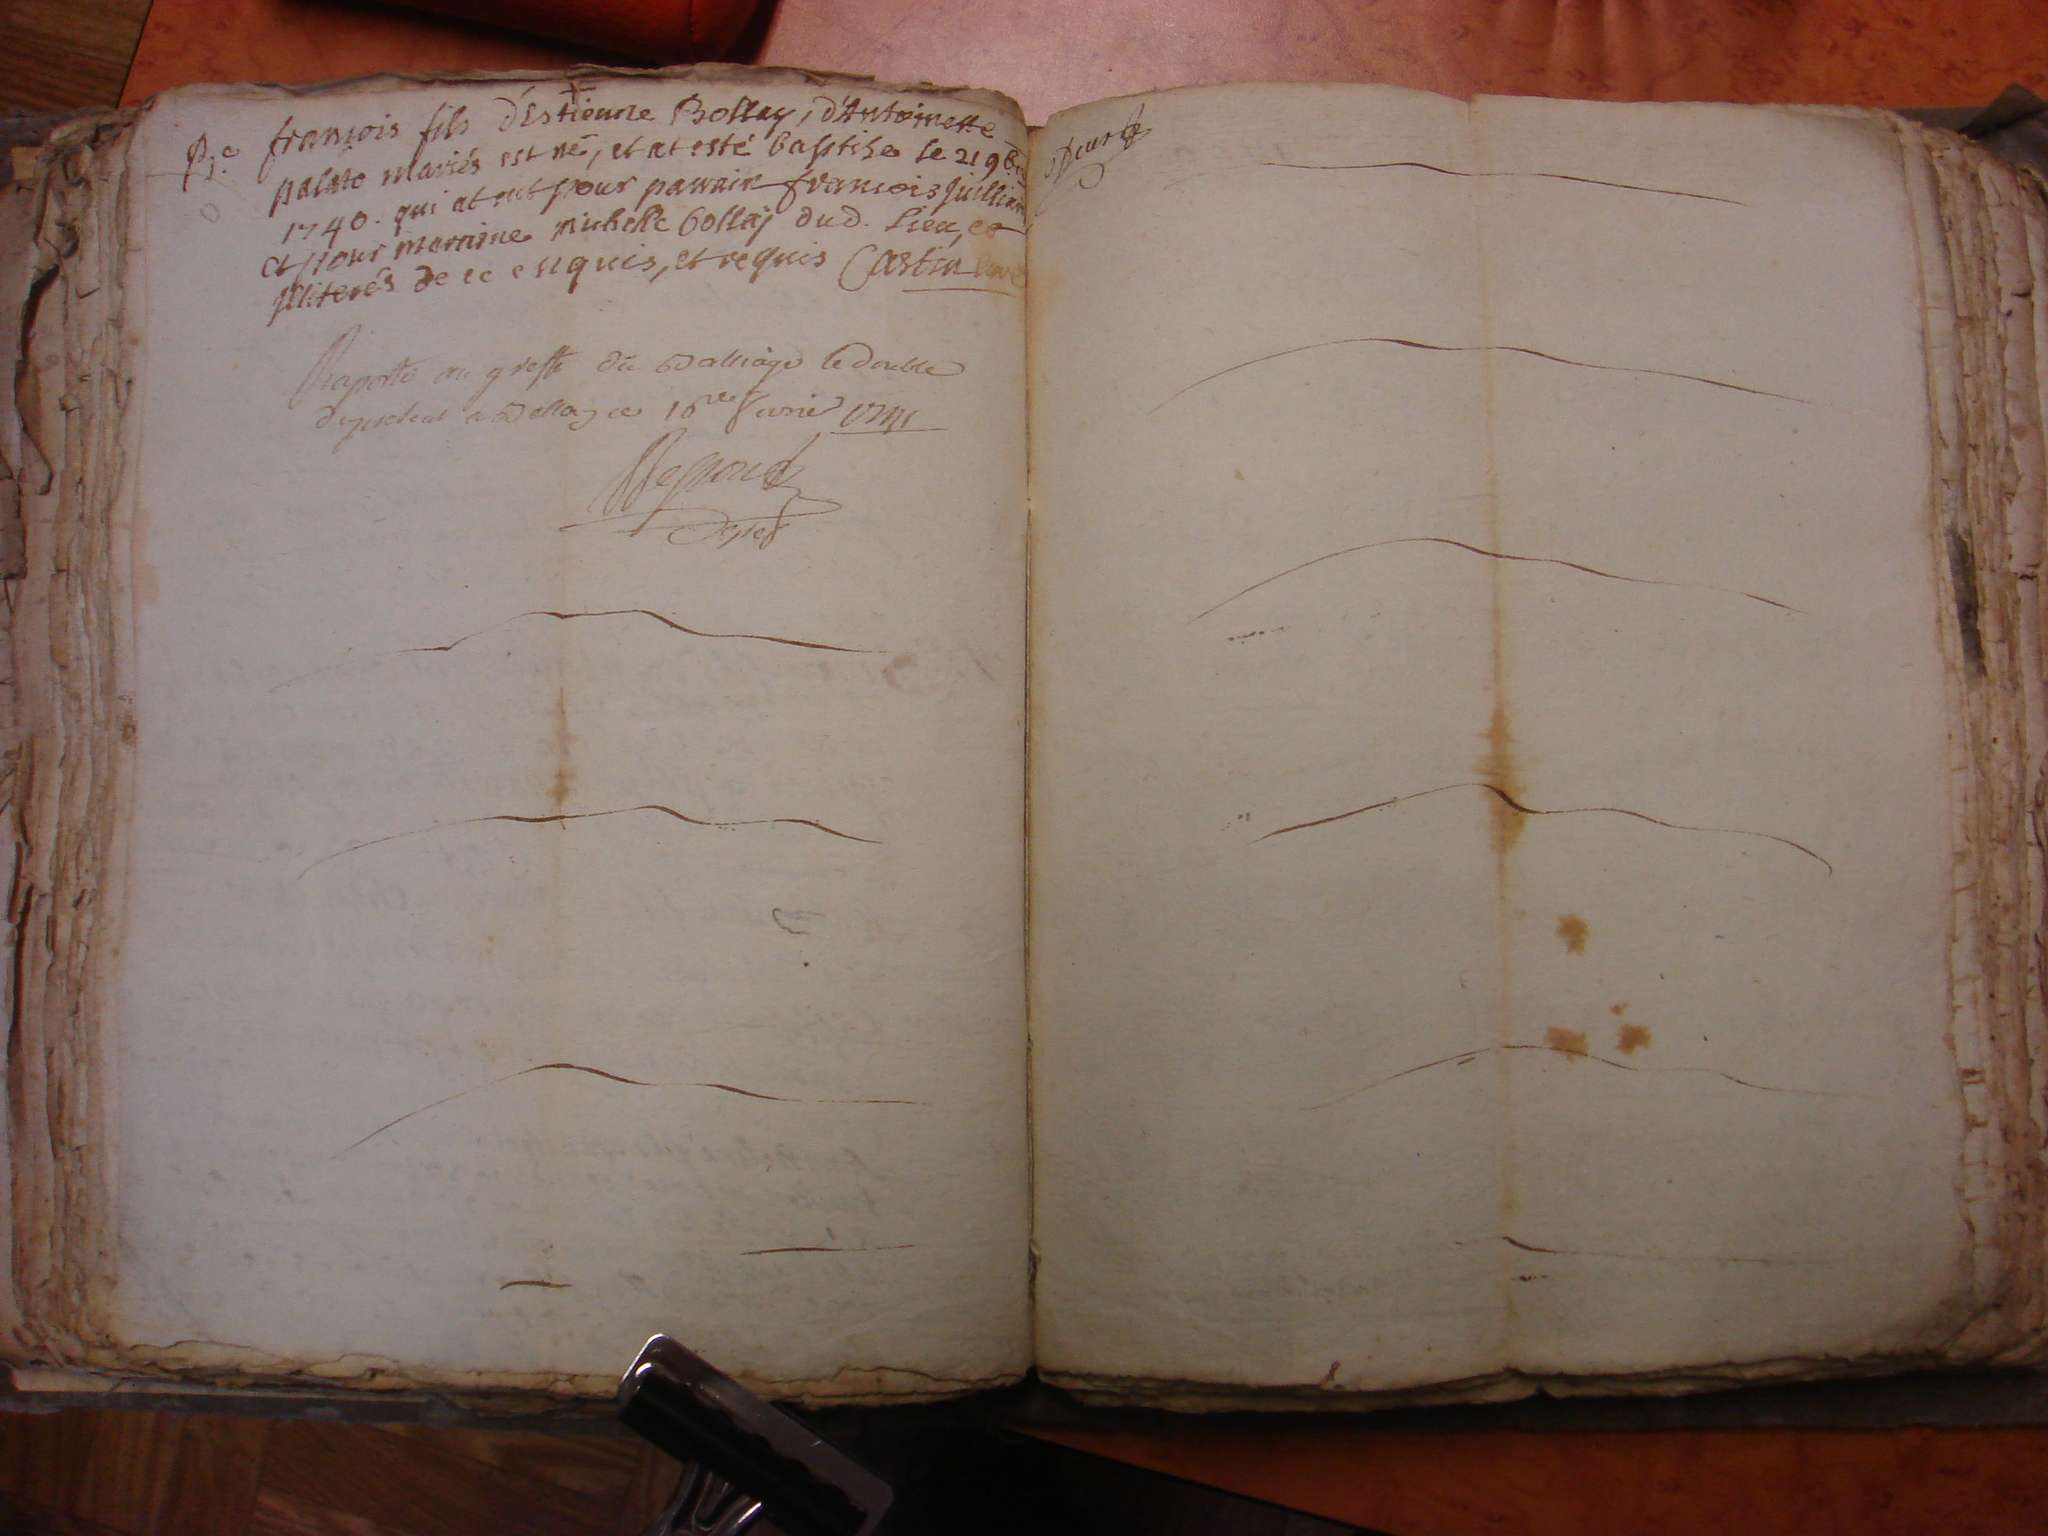 B.e françois fils d'Estienne Bollay, d'Antoinette
palato mariés est né, et at esté baptise le 21 9b.
1740. qui at eut pour parrain françois Juilliar
et pour marraine michelle bollaÿ dud. Lieu, et
jlliterés de ce enquis, et requis Castin
Raporté au greffe du Balliage le double
du present a Bellay ce 10 fevrier 1741